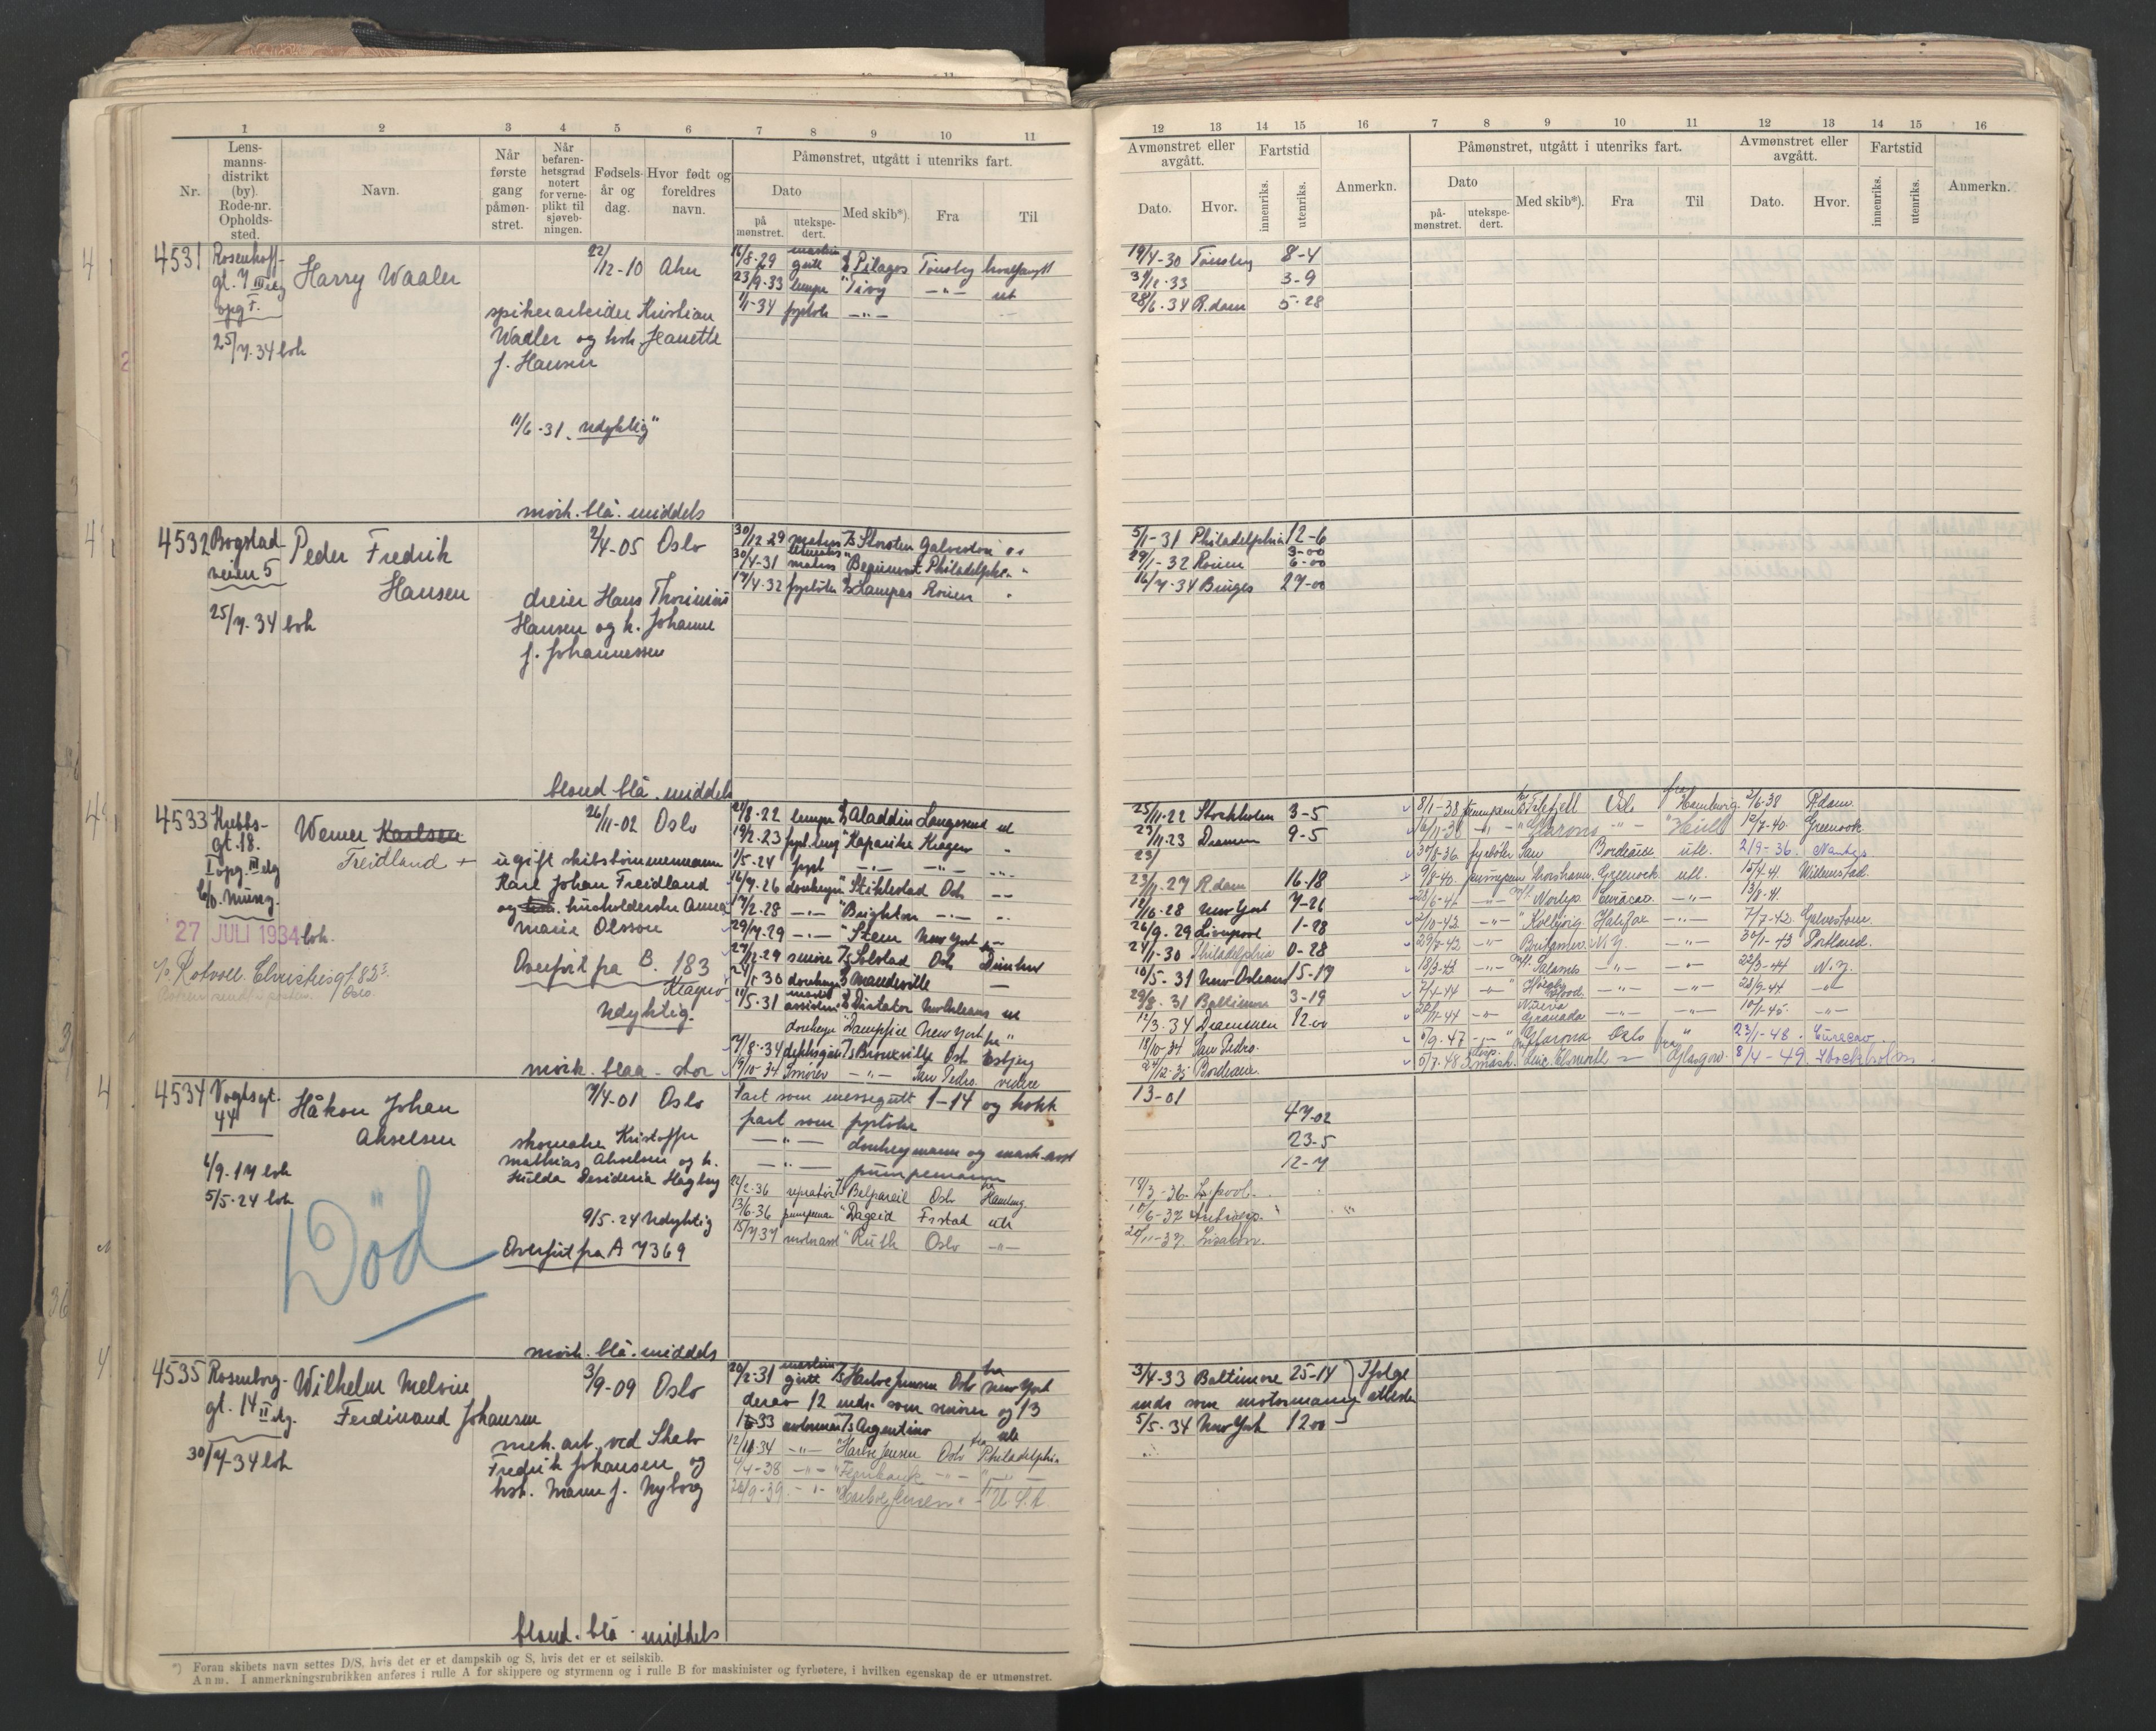 1 2 3 4 5 6 7 8 9 10 11
Nr.
Lens-
manns-
distrikt
(by).
Rode-nr.
Opholds-
sted.
Navn.
Når
første
gang
påmøn-
stret.
Når
befaren-
hetsgrad
notert
for verne-
plikt til
sjøveb-
ningen.
Fødsels-
år og
dag.
Hvor født og
foreldres
navn.
Påmønstret, utgått i utenriks fart.
Dato
på
mønstret.
utekspe-
dert.
Med skib*).
Fra
Til
4531
Rosenhoff-
gt. 7 III etg
opg F.
25/7-34 boh
Harry Waaler
22/12-10 Aker
spikerarbeider Kristian
Waaler og hvh. Jeanette
f. Hansen
11/6-31 "Udyktig"
mörk. blå. middels
16/8-29 maskin gutt Pelagos Tönsby hvalfangst
23/9-33 lemper "Tivy —"— ut
1/1-34 fyrböt —"—
4532
Bogstad-
veien 5
25/7-34 boh
Peder Fredrik
Hansen
2/4-05 Oslo
dreier Hans Thorinius
Hansen og h. Johanne
f. Johannessen
blond blå. middels
30/12-29 matros Storsten Galveston
30/4-31 matros "Beaumont Philadelphia "
17/4-32 fyrböter Lampas Rouen "
4533
Krebbs-
gt. 18.
I opg. III etg
27 JULI 1934 boh.
c/o Rotvoll. Christiesgt. 82
Oslo.
Werner Karlsen
Freidland +
26/11-02 Oslo
ugift skibstömmermann
Karl Johan Freidland
og husholderske Anna
Marie Olsson
Overfört fra B. 183
Kragerø
Udyktig
mörk. blaa - stor
21/8-22 lemper Aladdin Langesund ut
19/2-23 fyrb. lemp "Kaparika Kragerø "
1/5-24 fyrb —"— —"— —"—
16/7-26 donkeym "Stiklestad Oslo —"—
17/2-28 —"— "Brighton —"— —"—
29/7-29 —"— "Stem New York
27/12-29 smörer Solstad Oslo
24/1-30 donkeym Mandeville —
11/5-31 maskin assistent Dictator New Orleans ut
donkeym "Dampfire New York fra "
2/8-34 dekksgutt Bronxville Oslo Esbjerg
19/10-34 Smörer —"— San Pedro videre
4534
Vogtsgt.
44
6/9-17 boh
5/5-24 boh
Håkon Johan
Akselsen
Död
7/4-01 Oslo
skomaker Kristoffer
Mathias Akselsen og h.
Hulda Desideria Hagby
9/5-24 Udyktig
Overfört fra A 7369
mörk. blå. middels
Fart som messegutt 1-14 og kokk
fart som fyrböter
—"— donkeymann og mask. asst
—"— pumpemann
22/2-36 reparatör Belpareil Oslo fra Hamburg.
13/6-36 pumpeman "Dageid F.stad utl
15/7-37 "Ruth Oslo —"—
4535
Rosenborg-
gt. 14 II etg.
30/7-34 boh
Wilhelm Melvin
Ferdinand Johansen
3/9-09 Oslo
mek. arb. ved Skabo
Fredrik Johansen og
hst. Marie f. Nyborg
blond. blå. middels
20/2-31 maskin gutt Harboe Jensen Oslo fra New York
derav 12 mdr. som smörer og 13
33 motorman Argentino utl
12/11-34 —"— "Harboe Jensen Oslo fra Philadelphia
4/4-38 —"— "Fernbank —"—
20/9-39 —"— "Harboe Jensen " "U.S.A.
*) Foran skibets navn settes D/S, hvis det er et dampskib og S, hvis det er et seilskib.
Anm. I anmerkningsrubrikken anføres i rulle A for skippere og styrmenn og i rulle B for maskinister og fyrbøtere, i hvilken egenskap de er utmønstret.
12 13 14 15 16 7 8 9 10 11 12 13 14 15 16
Avmønstret eller
avgått.
Dato.
Hvor.
Fartstid
innenriks.
utenriks.
Anmerkn.
Påmønstret, utgått i utenriks fart.
Dato
på-
mønstret.
utekspe-
dert.
Med skib*).
Fra
Til
Avmønstret eller
avgått.
Dato.
Hvor.
Fartstid
innenriks.
utenriks.
Anmerkn.
19/4-30 Tönsberg 8-4
31/12-33 3-9
28/6-34 R.dam 5-28
5/1-31 Philadelphia 12-6
29/1-32 Rouen 3-00
6-00
16/7-34 Bruges 27-00
25/11-22 Stockholm 3-5
23/11-23 Drammen 9-5
23/11-27 R.dam 16-18
New York 7-26
26/9-29 Liverpool 1-28
24/1-30 Philadelphia 0-28
10/5-31 New Orleans 15-17
29/8-31 Baltimore 3-19
12/3-34 Drammen 12-00
18/10-34 San Pedro.
24/12-35 Bordeaux.
8/1-38 Pumpem Falkefjell Oslo fra Hamburg. 2/6-38 R.dam.
16/11-38 —"— "Glarona —"— "Hull 12/7-40. Greenock
30/8-36 fyrböter San Bordeaux utl. 21/9-36. Nantes
9/8-40. pumpem Thorshavn. Greenock utl. 15/4-41. Willemstad.
28/6-41 —"— Norbys. Curacao. —"— 13/8-41.
2/10-42 —"— "Kollbjörg Halifax —"— 7/7-42. Galvestone.
29/7-42 —"— Britamsea N.Y. —"— 30/1-43 Portland.
18/3-43 —"— Salamis —"— —"— 22/3-44 N.Y.
7/4-44 —"— Höegh Hood —"— —"— 28/9-44 —"—
20/11-44 —"— Nueva Granada —"— —"— 10/1-45. —"—
5/9-47 —"— "Glarona Oslo fra " 23/1-48. Curacao.
5/7-48 3 mask. Linc. Elsworth — Glasgow. 8/4-49. Stockholm.
13-01
47-02
23-5
12-7
14/3-36. L.pool.
10/6-37 Antwerp.
20/11-37. Lissabon.
3/4-33 Baltimore 25-14 } Ifölge
mdr som motormann attester
5/5-34 New York 12-00